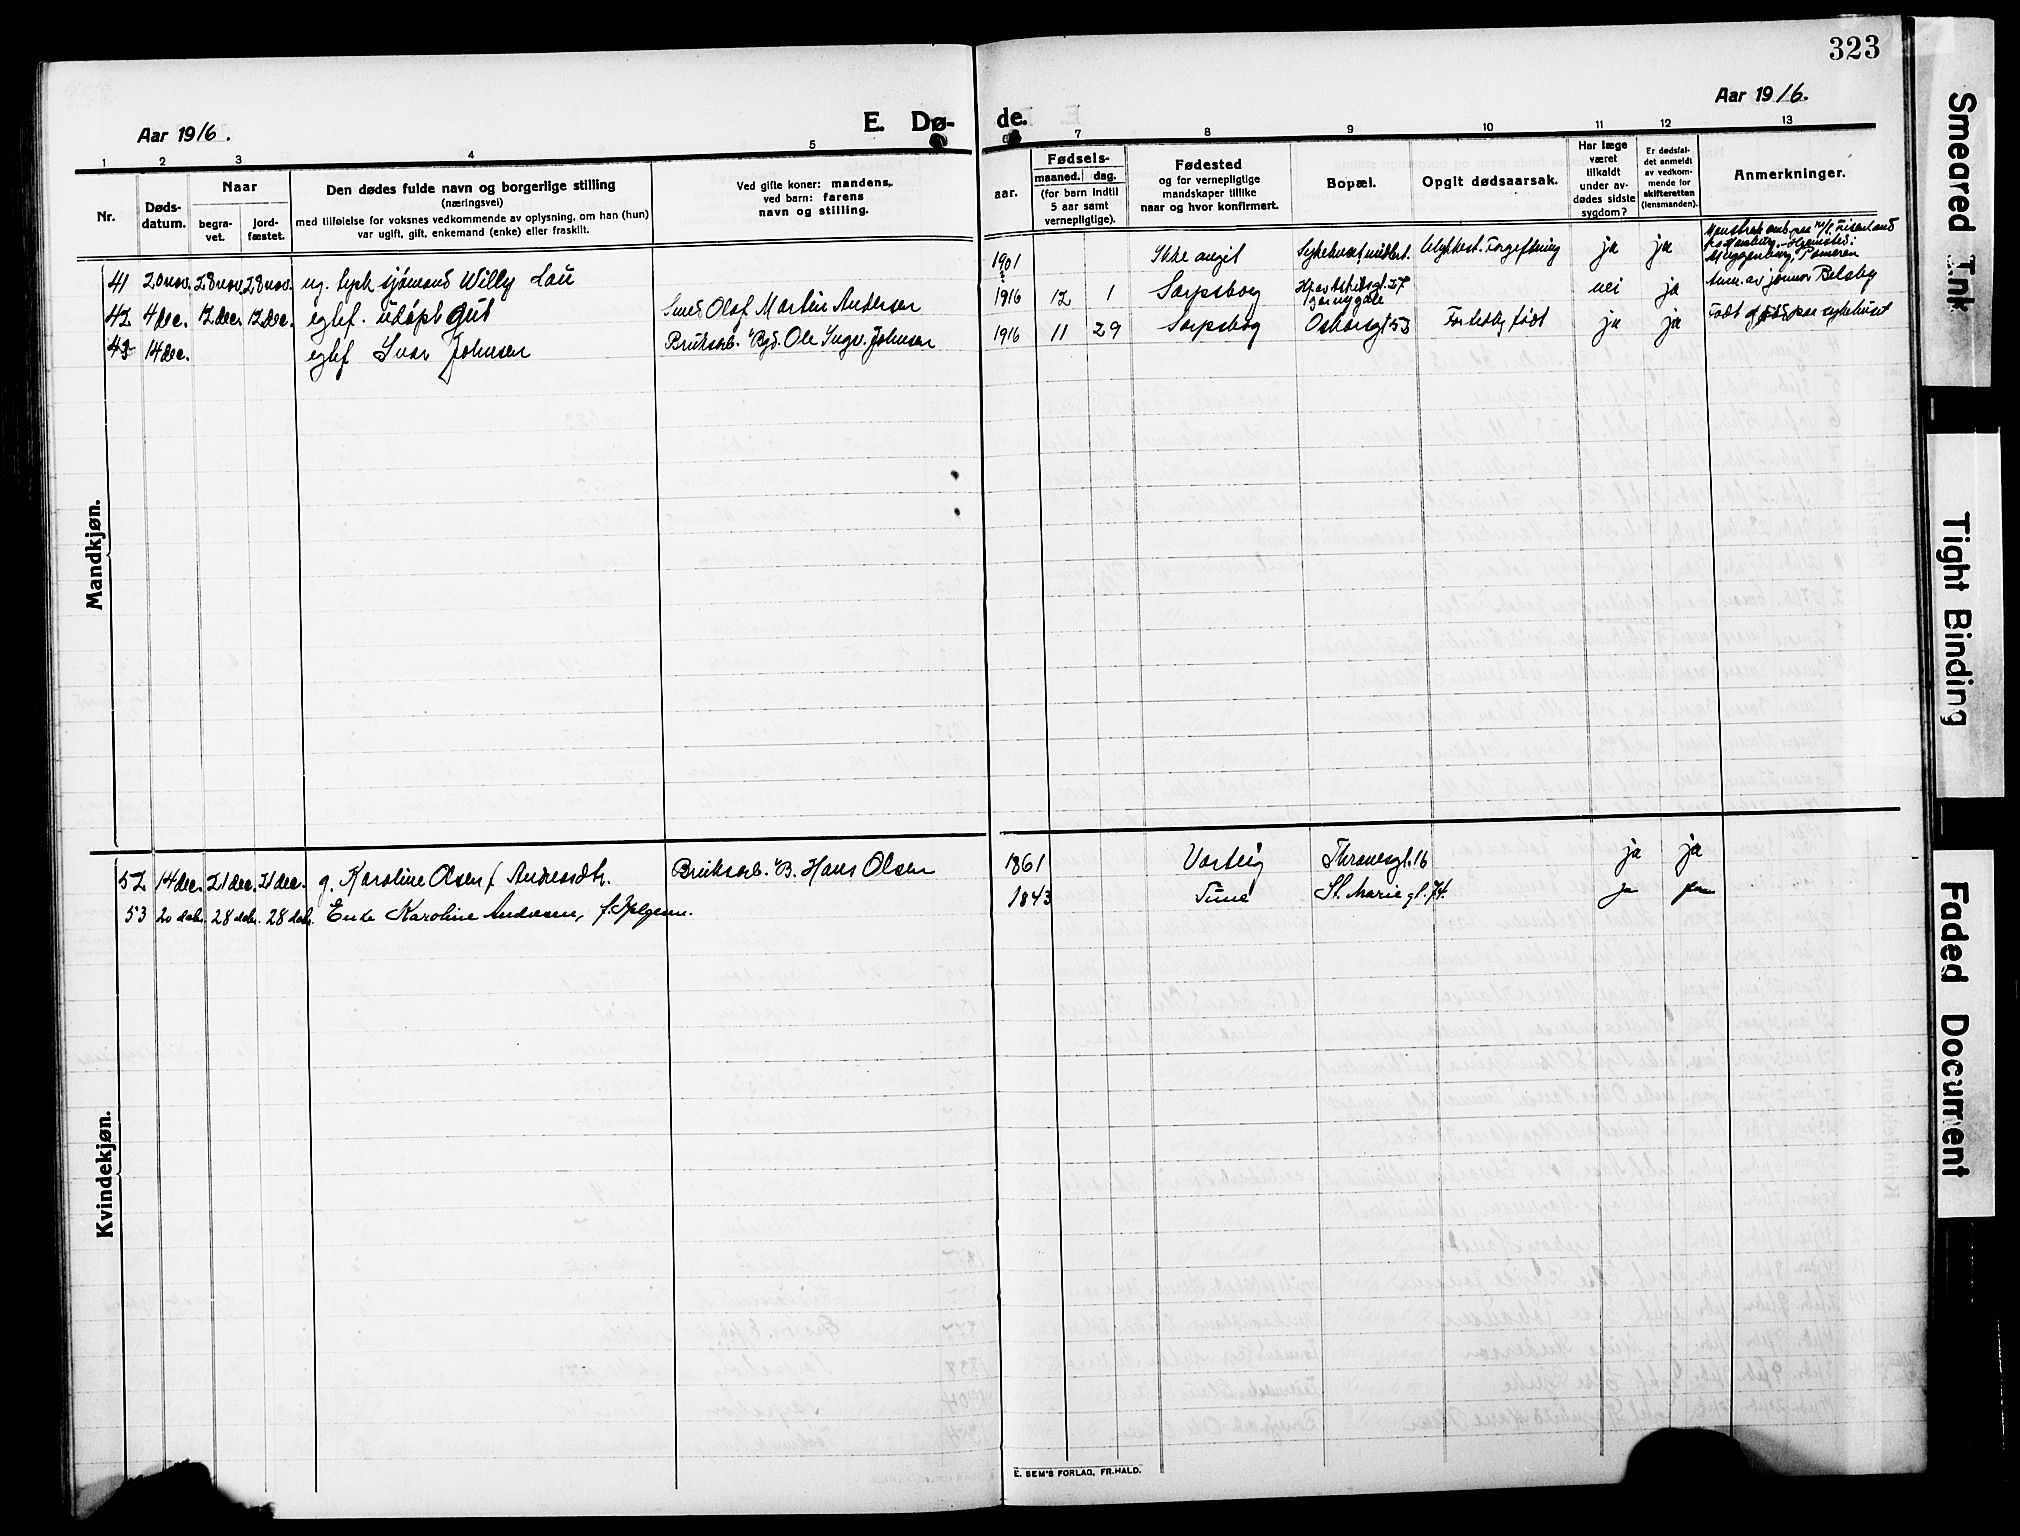 323
Aar 1916.
E. Dø-
de.
Aar 1916.
1 2 3 4 5 7 8 9 10 11 12 13
Nr.
Døds-
datum.
Naar
begra-
vet.
jord-
fæstet.
Den dødes fulde navn og borgerlige stilling
(næringsvei)
med tilføielse for voksnes vedkommende av oplysning, om han (hun)
var ugift, gift, enkemand (enke) eller fraskilt.
Ved gifte koner: mandens,
ved barn: farens
navn og stilling.
aar.
Fødsels-
maaned. dag.
(for barn indtil
5 aar samt
vernepligtige).
Fødested
og for vernepligtige
mandskaper tillike
naar og hvor konfirmert.
Bopæl.
Opgit dødsaarsak.
Har læge
været
tilkaldt
under av-
dødes sidste
sygdom?
Er dødsfal-
det anmeldt
av vedkom-
mende for
skifteretten
(lensmanden).
Anmerkninger.
Mandkjøn.
41 20 nov. 28 nov. 28 nov. ug. tysk sjømand Willy Lau 1901 Ikke angit Ulykkest. Forgiftning ja ja
42 4 dec. 12 dec. 12 dec. egtef. udøpt gut Smed Olaf Martin Andersen 1916 12 1 Sarpsborg nei ja
43 14 dec. egtef Ivar Johnsen Bruksarb. Ole Ingv. Johnsen 1916 11 29 Sarpsborg Oskarsgt 53 ja ja
Kvindekjøn.
52 14 dec. 21 dec. 21 dec. g. Karoline Olsen f. Andreasdtr. Bruksarb. B. Hans Olsen 1861 Varteig Thranesgt. 16 ja ja
53 20 dcbr. 28 dcbr. 28 dcbr. Enke Karoline Andersen, f. Helgesen. 1843 Tune St. Marie gt. 74. ja ja
E. SEM'S FORLAG, FR.HALD.
Smeared Ink
Tight Binding
Faded Document